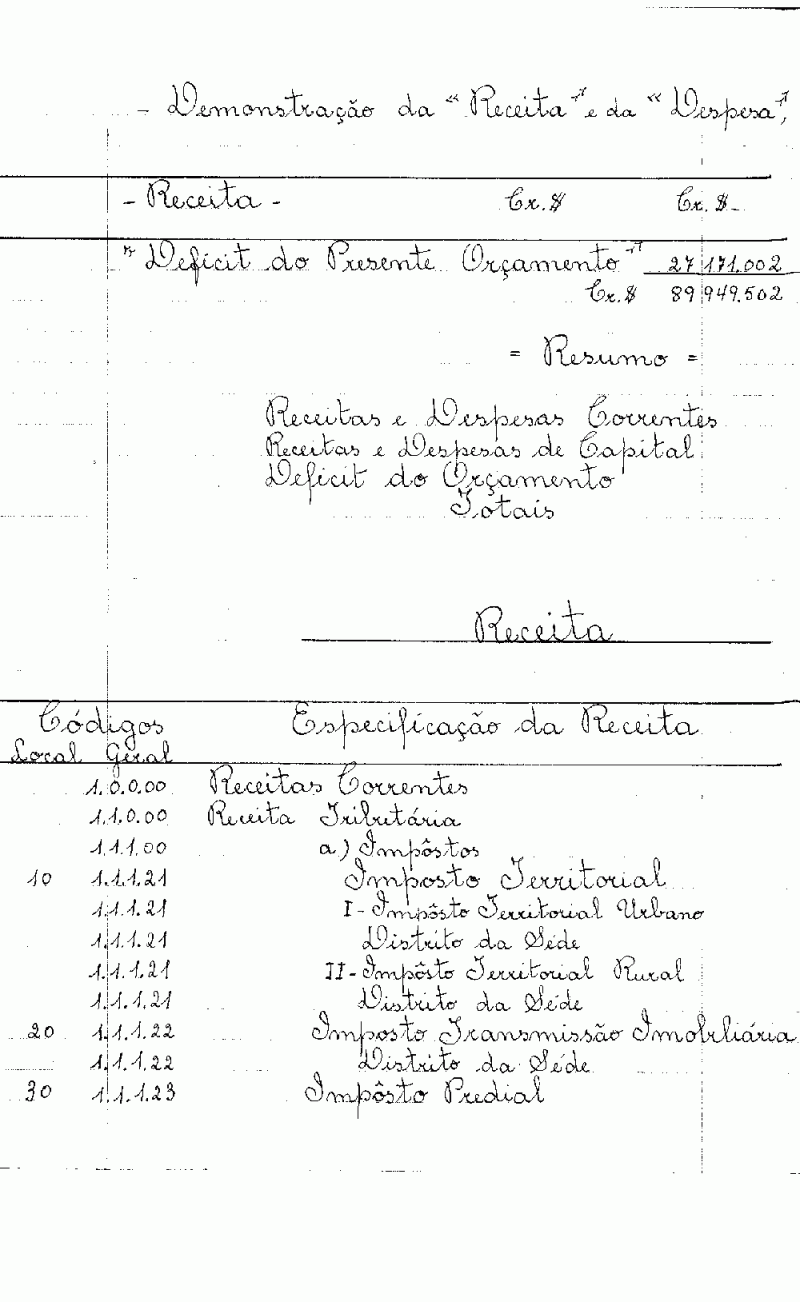 - Demonstração da "Receita" e da "Despesa",
- Receita - Cr.$ Cr.$-
"Deficit do Presente Orçamento" 27 171.002
Cr.$ 89 949.502
= Resumo =
Receitas e Despesas Correntes
Receitas e Despesas de Capital
Deficit do Orçamento
Totais
Receita
Códigos Especificação da Receita
Local Geral
1.0.0.00 Receitas Correntes
1.1.0.00 Receita Tributária
1.1.1.00 a) Impôstos
10 1.1.1.21 Imposto Territorial
1.1.1.21 I - Impôsto Territorial Urbano
1.1.1.21 Distrito da Séde
1.1.1.21 II - Impôsto Territorial Rural
1.1.1.21 Distrito da Séde
20 1.1.1.22 Imposto Transmissão Imobiliária
1.1.1.22 Distrito da Séde
30 1.1.1.23 Impôsto Predial